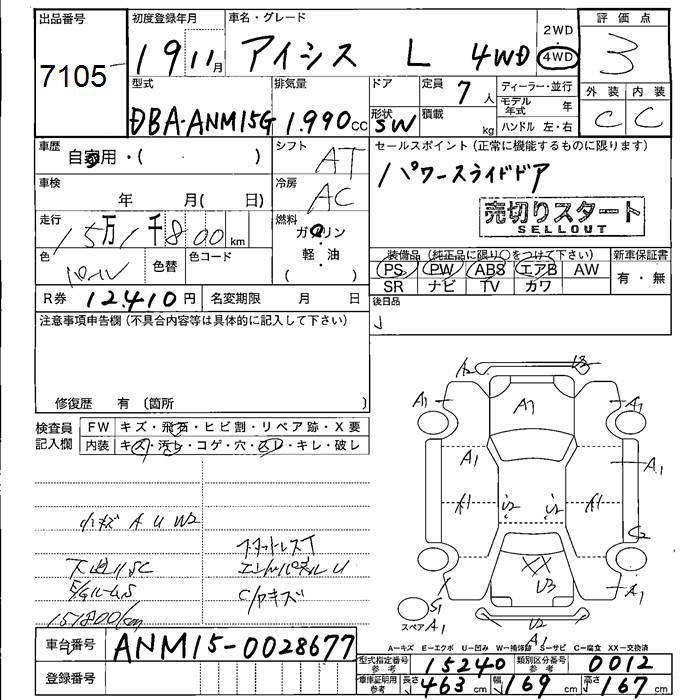 出品番号
7105
初度登録年月
19 11月
車名・グレード
アイシス L 4WD
2WD
4WD
評価点
3
型式
DBA-ANM15G
排気量
1.990cc
ドア
形状
SW
定員 7人
積載 kg
ディーラー・並行
モデル年式 年
ハンドル 左・右
外装 内装
C C
車歴
自家用・( )
シフト
AT
セールスポイント(正常に機能するものに限ります)
パワースライドドア
車検
年 月( 日)
冷房
AC
売切りスタート
SELLOUT
走行
15万1千800km
燃料
ガソリン
・
軽・油
色
色替
色コード
装備品(純正品に限り○をつけて下さい)
新車保証書
PS PW ABS エアB AW
有・無
SR ナビ TV カワ
R券 12.410円
名変期限 月 日
後日品
注意事項申告欄(不具合内容等は具体的に記入して下さい)
修復歴 有 〔箇所 〕
検査員記入欄
FW キズ・飛石・ヒビ割・リペア跡・X要
内装 キズ・汚レ・コゲ・穴・スレ・キレ・破レ
小キズ A U W2
スタットレスT
エンドパネルU
151800km
車台番号 ANM15-0028677
登録番号
A2 U2
A1 A1 A1
A1 A1
A1 U2 U2 A1
C2
XX
U3
A1
S1
スペア A1
U2
A1
A-キズ E-エクボ U-凹み W-補修跡 S-サビ C-腐食 XX-交換済
型式指定番号 参考 15240
類別区分番号 参考 0012
車庫証明用 参考 長さ 463cm 幅 169cm 高さ 167cm